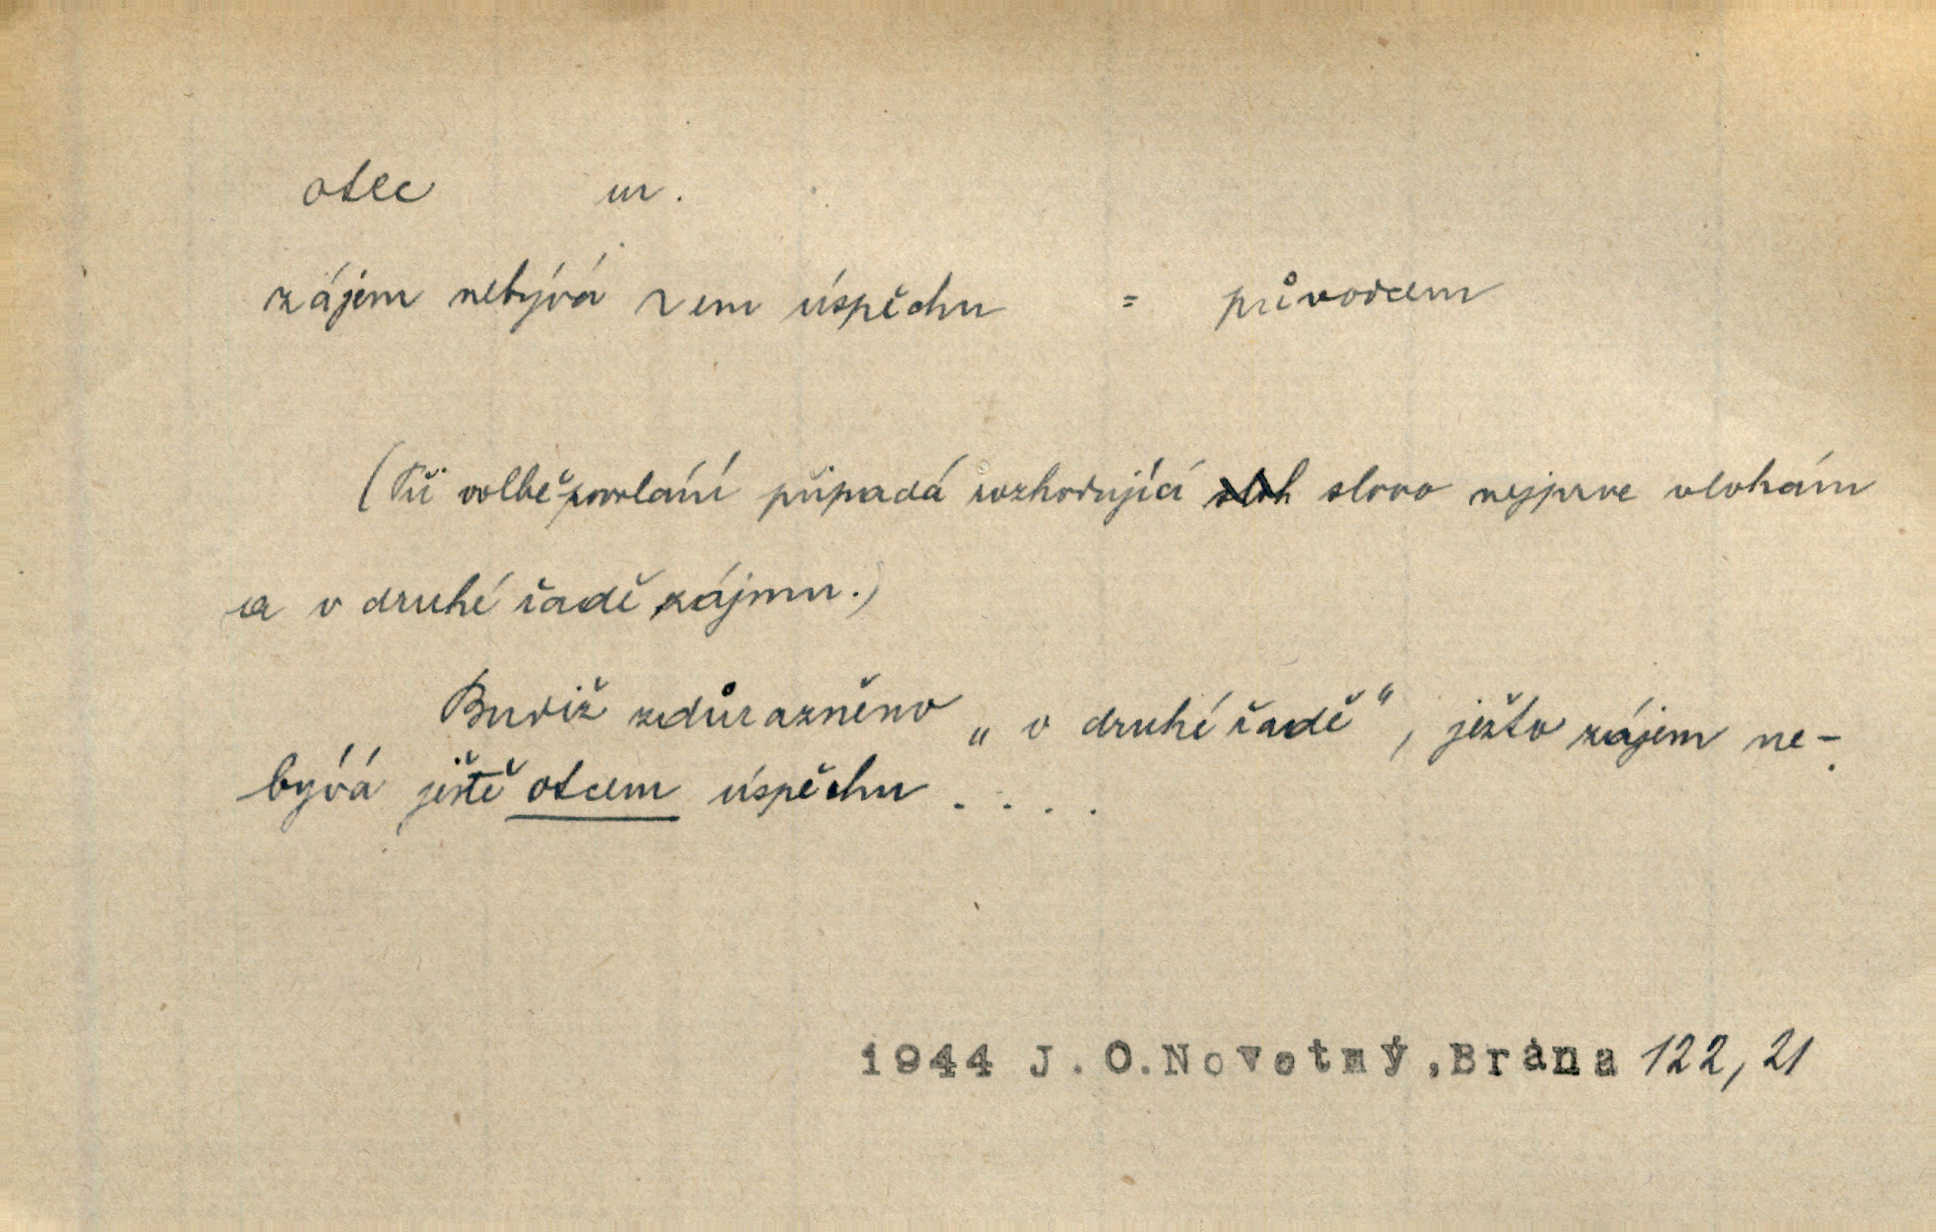 otec m.
zájem nebývá ~em úspěchu = původcem
(Při volbě povolání připadá rozhodující sloh slovo nejprve vlohám
a v druhé řadě zájmu.)
Budiž zdůrazněno „v druhé řadě“, ježto zájem ne-
bývá ještě otcem úspěchu . . . .
1944 J.O.Novotný,Brána 122,21